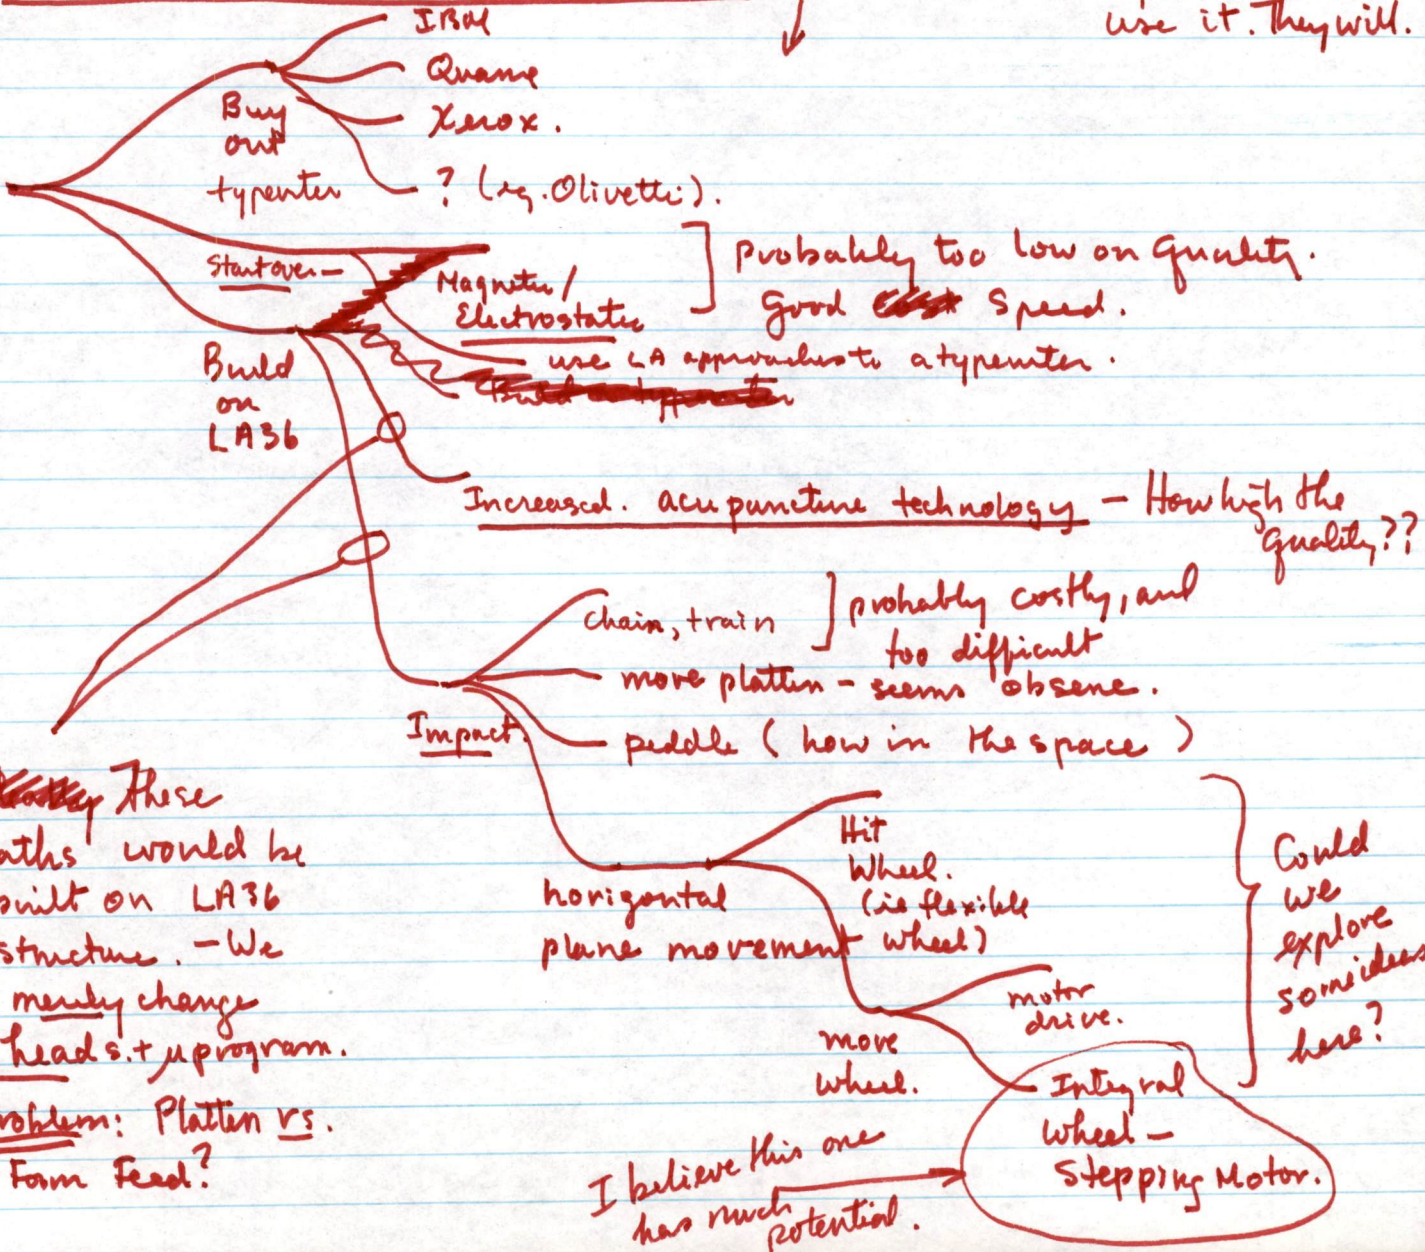 use it. They will.
IBM
Qume
Xerox.
? (eg. Olivetti).
Buy
out
typewriter
Start over—
Magnetic/
Electrostatic
probably too low on quality.
Good Speed.
use LA approaches to a typewriter.
Build
on
LA36
Increased. acupuncture technology — How high the
quality??
chain, train
probably costly, and
too difficult
move platten — seems obsene.
peddle (how in the space)
Impact.
These
aths would be
built on LA36
structure. — We
merely change
heads. + μprogram.
roblem: Platten vs.
Form Feed?
horizontal
plane movement
Hit
Wheel.
(ie flexible
wheel)
move
wheel.
motor
drive.
Integral
Wheel —
Stepping Motor.
Could
we
explore
some ideas
here?
I believe this one
has much
potential.